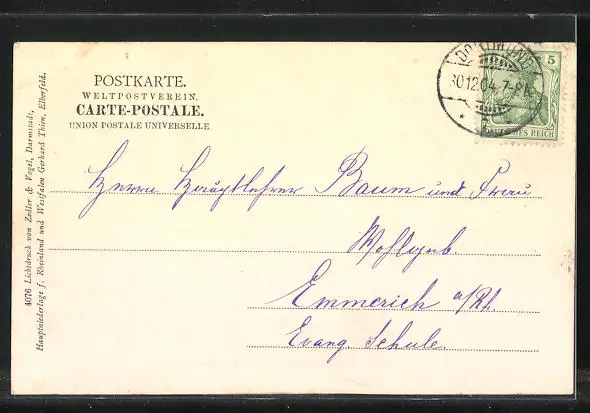 POSTKARTE.
WELTPOSTVEREIN.
CARTE-POSTALE.
UNION POSTALE UNIVERSELLE
DORTMUND
30.12.04. 7-8N.
5
DEUTSCHES REICH
Herrn Hauptlehrer Baum und Frau
Wohlgeb.
Emmerich a/Rh.
Evang. Schule.
4076 Lichtdruck von Zedler & Vogel, Darmstadt,
Hauptniederlage f. Rheinland und Westfalen Gerhard Thien, Elberfeld.